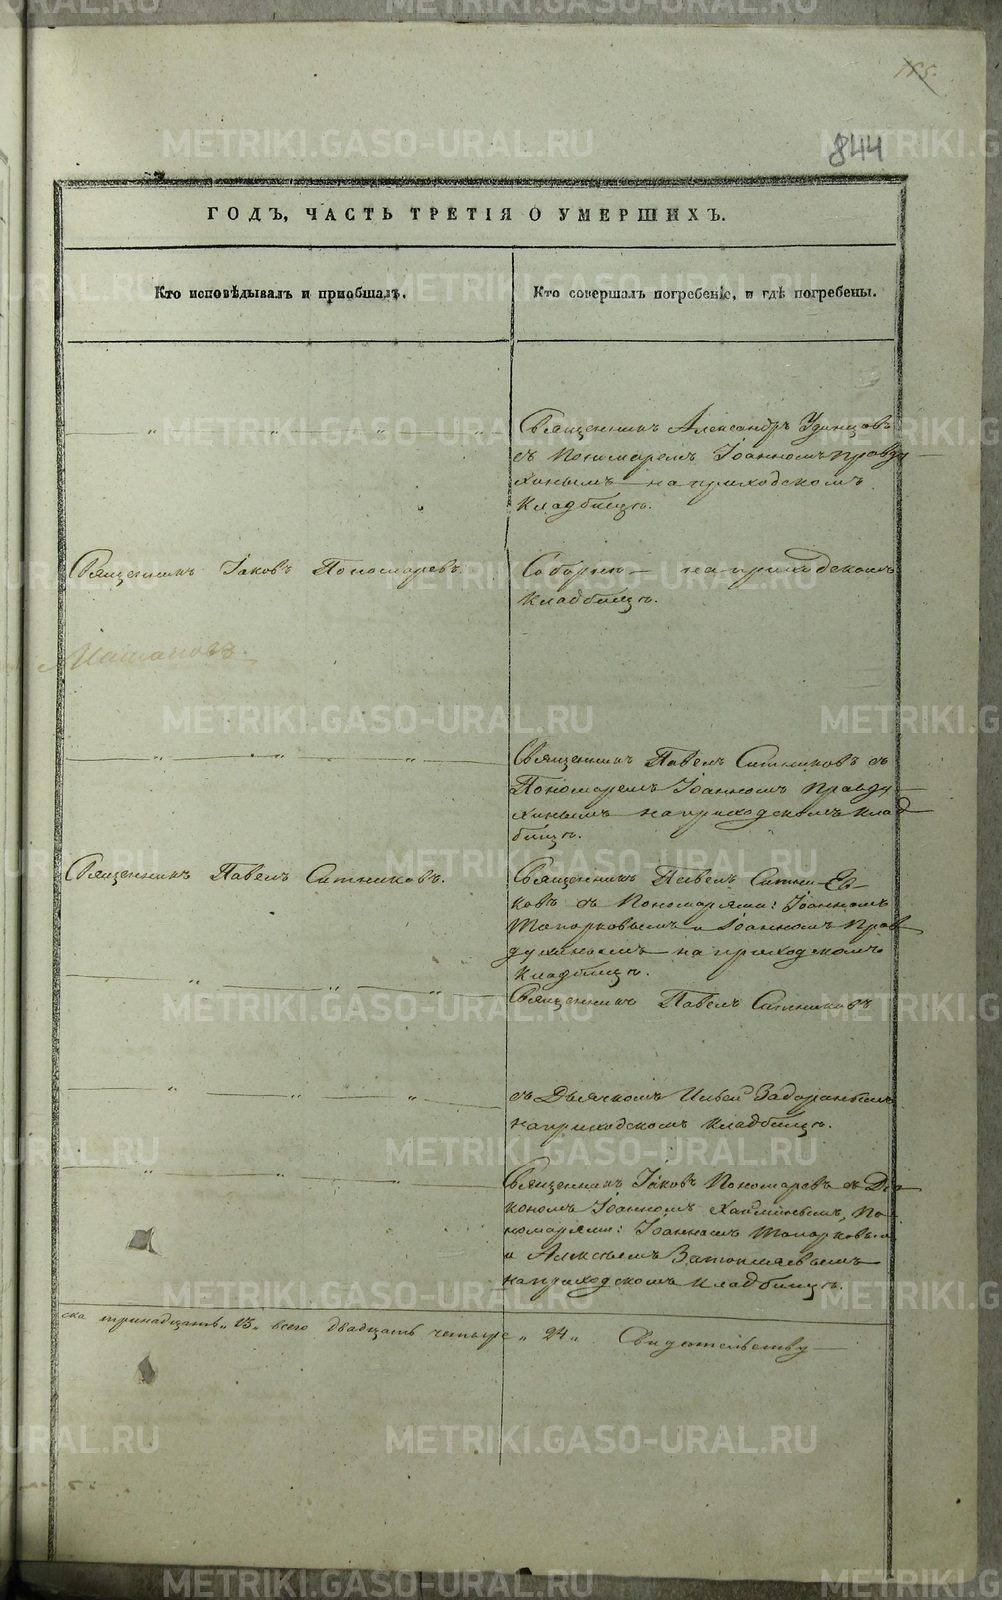 185.
844
ГОДЪ, ЧАСТЬ ТРЕТІЯ О УМЕРШИХЪ.
Кто исповѣдывалъ и приобщалъ.
Кто совершалъ погребеніе, и гдѣ погребены.
Священникъ Александръ Удинцовъ
съ Пономаремъ Іоанномъ Правду-
хинымъ на приходскомъ
кладбищѣ.
Священникъ Іаковъ Пономаревъ.
Соборнѣ — на приходскомъ
кладбищѣ.
Священникъ Павелъ Ситниковъ съ
Пономаремъ Іоанномъ Правду-
хинымъ на приходскомъ клад
бищѣ.
Священникъ Павелъ Ситниковъ.
Священникъ Павелъ Ситни-
ковъ съ Пономарями: Іоанномъ
Топорковымъ и Іоанномъ Прав
духинымъ на приходскомъ
кладбищѣ.
Священникъ Павелъ Ситниковъ
съ Дьячкомъ Ильей
на приходскомъ кладбищѣ.
Священникъ Іаковъ Пономаревъ съ Діа
кономъ Іоанномъ По-
номарями: Іоанномъ Топорковымъ
и Алексѣемъ
на приходскомъ кладбищѣ.
ска тринадцать „13„ всего двадцать четыре „24„ Свидѣтельству—
METRIKI.GASO-URAL.RU